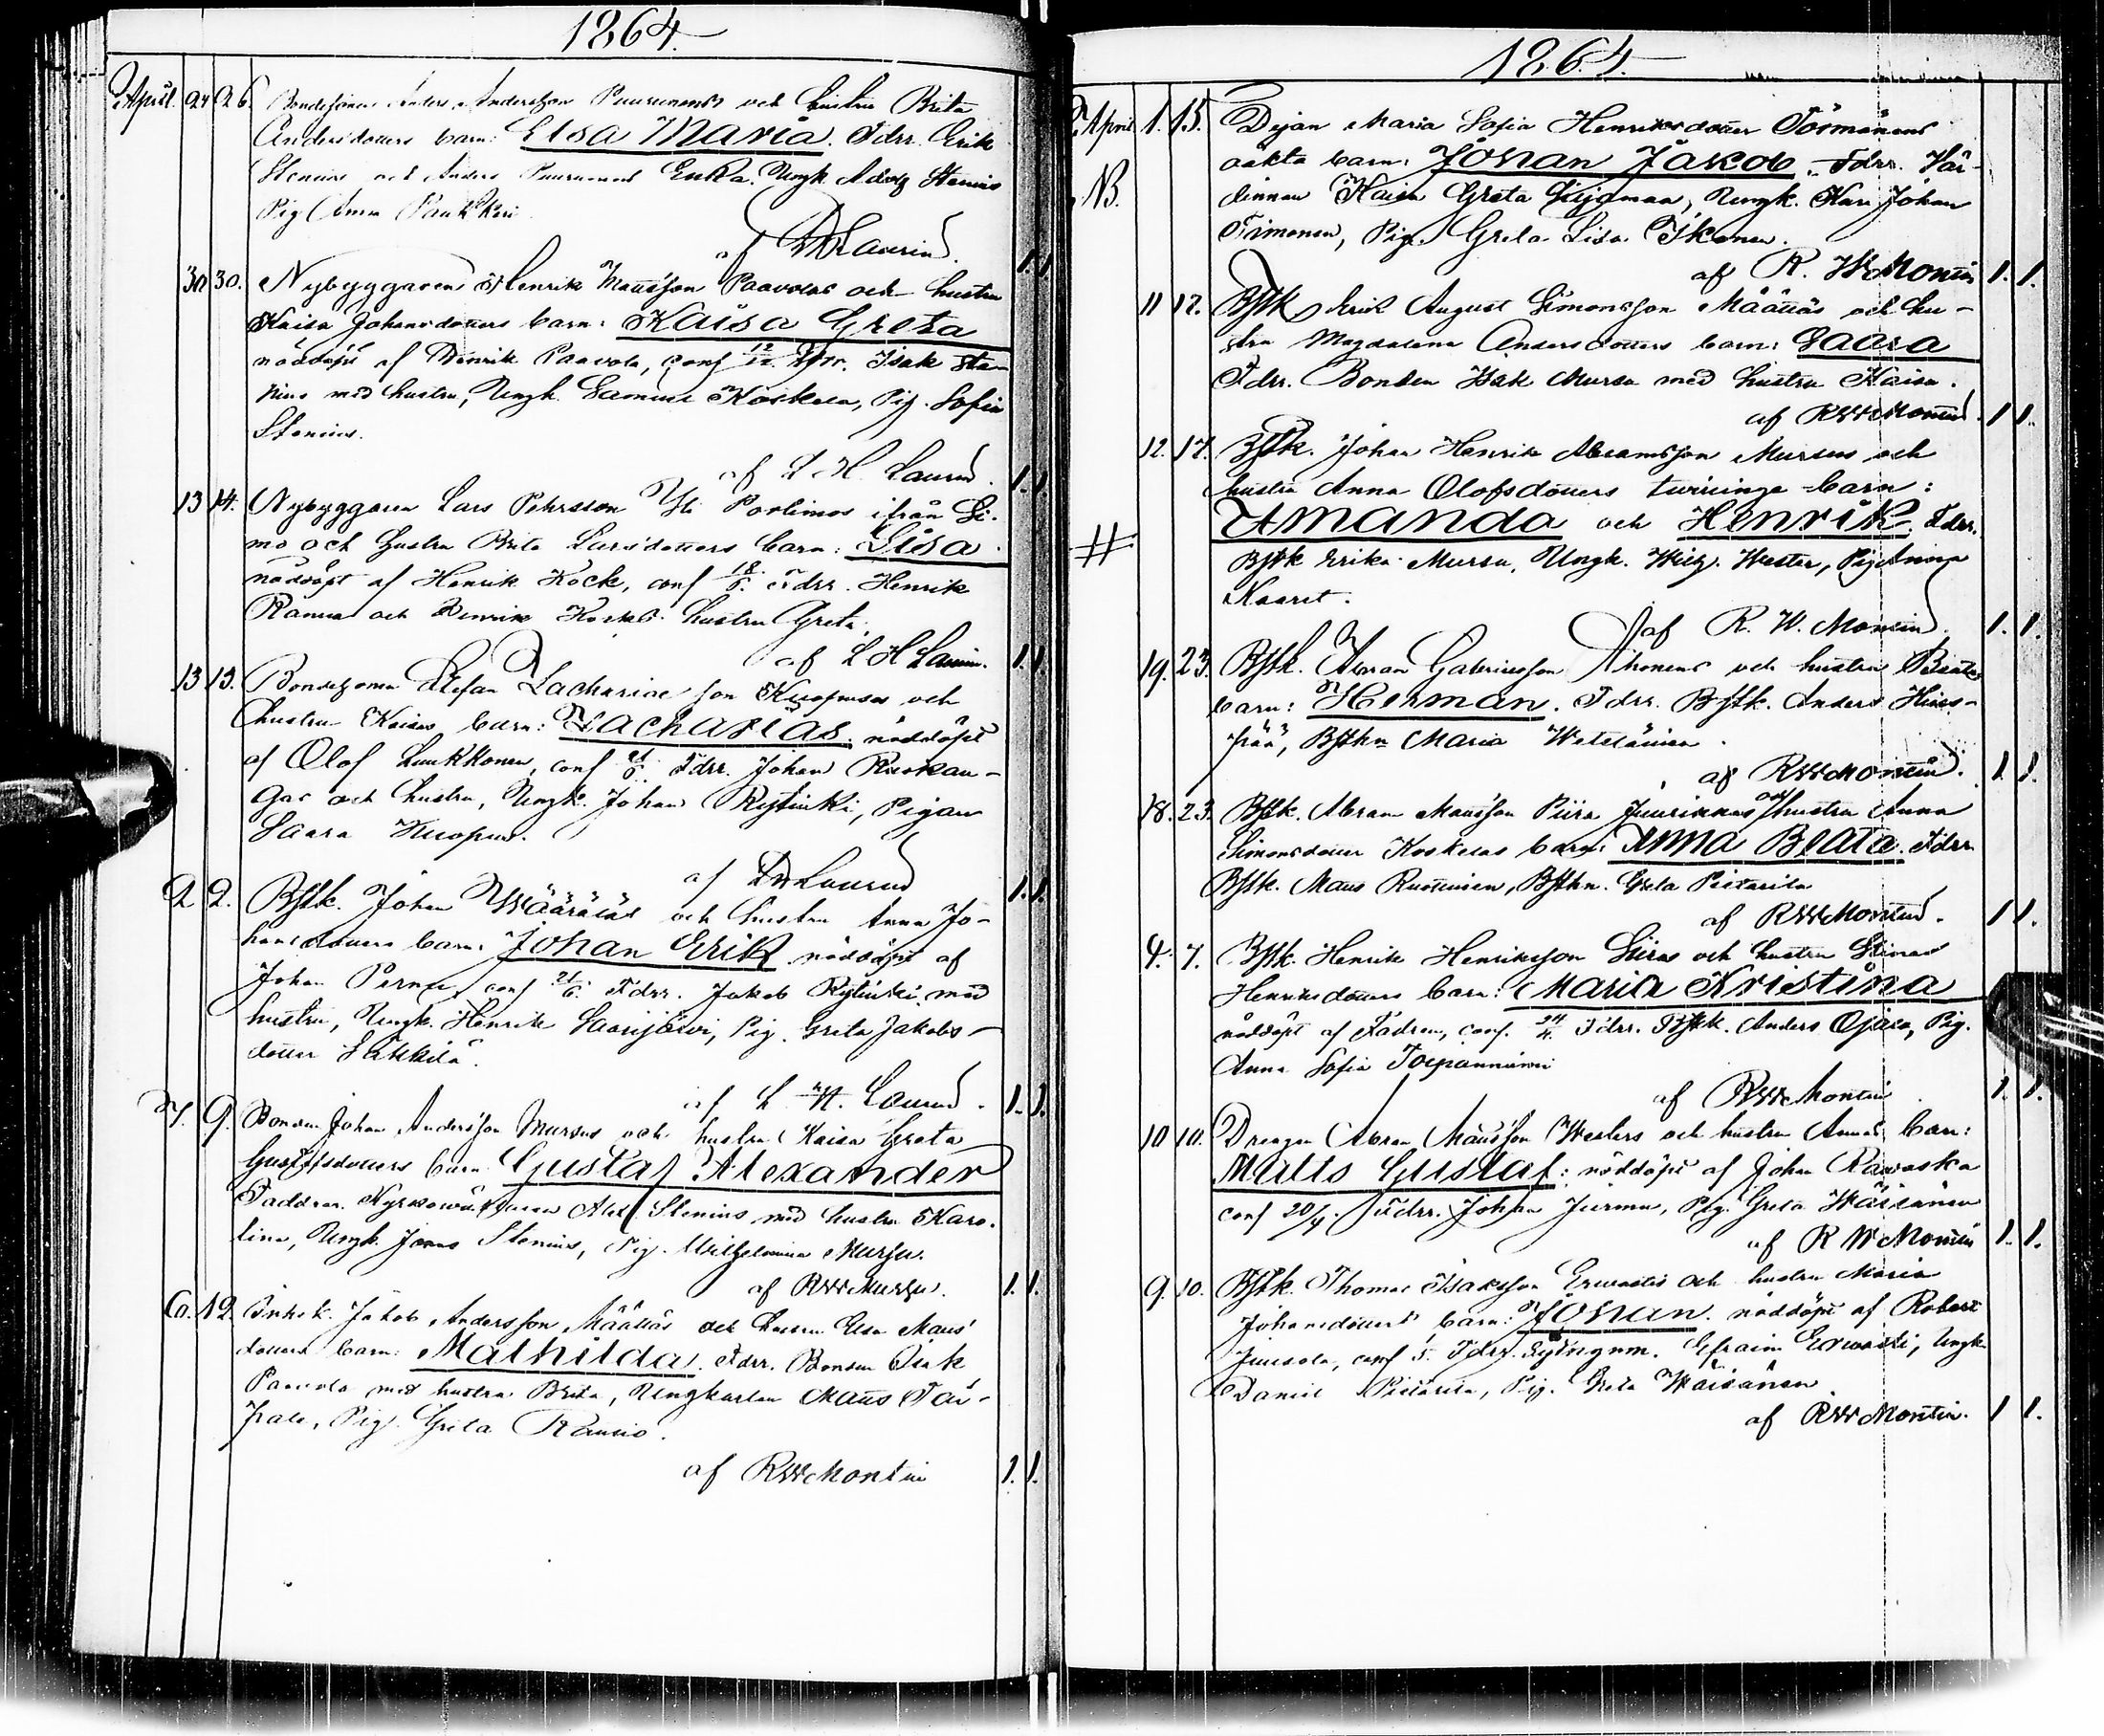 1864.
April 24 26. Bondesonen Anders Andersson Puurunens och hustru Brita
Andersdotters barn: Elsa Maria. Fdrr. Erik
Stenius och Anders Puurunens Enka. Ungk. Adolf Stenius
Pig. Anna
af L H Laurin. 1. 1.
30 30. Nybyggaren Henrik Mattsson Paavolas och hustru
Kaisa Johansdotters barn: Kaisa Greta
nöddöpt af Henrik Paavola, conf Fdrr. Isak Ste-
nius med hustru, Ungk. Samuel Koskela, Pig. Sofia
Stenius.
af L H. Laurin. 1. 1.
13 14. Nybyggaren Lars Pehrsson Yli Portimos ifrån Si-
mo och hustru Brita Larsdotters barn: Lisa.
nöddöpt af Henrik Kock, conf 18/5. Fdrr. Henrik
Ranua och Henrik Kocks hustru Greta.
af L H Laurin. 1. 1.
13 13. Bondesonen Stefan Zachariae son Kuopusas och
hustru Kaisas barn: Zacharias. nöddöpt
af Olof Luukkonen, conf Fdrr. Johan Ruokan-
gas och hustru, Ungk. Johan Rytinki, Pigan
Saara Kuopus.
af L H Laurin 1. 1.
2 2. Bstk. Johan Wääräläs och hustru Anna Jo-
hansdotters barn: Johan Erik nöddöpt af
Johan Pernu, conf Fdrr. Jakob Rytinki med
hustru, Ungk. Henrik Saarijärvi, Pig. Greta Jakobs-
dotter Säkkilä.
af L H. Laurin. 1. 1.
7. 9. Bonden Johan Andersson Mursus och hustru Kaisa Greta
Gustafsdotters barn Gustaf Alexander
Faddrar. Kyrkowärdaren Alex. Stenius med hustru Karo-
lina, Ungk. Jonas Stenius, Pig. Wilhelmina Mursu.
af RW Mursu. 1. 1.
6. 12. Inhsk. Jakob Andersson Määttäs och hustru Elsa Mats-
dotters barn: Mathilda. Fdrr. Bonden Isak
Paavola med hustru Brita, Ungkarlen Matts Tai-
vale, Pig. Greta
af RW Montin 1. 1.
1864.
April 1. 15. Dejan Maria Sofia Henriksdotter Törmänens
NB. oäkta barn: Johan Jakob. Fdrr. Vär-
dinnan Kaisa Greta Ungk. Karl Johan
Timonen, Pig. Greta Lisa Ikonen.
af R. W Montin 1. 1.
11 12. Bstk Erik August Simonsson Määttäs och hu-
stru Magdalena Andersdotters barn: Saara
Fdrr. Bonden Isak Mursu med hustru Kaisa.
af RW Montin. 1 1.
12. 17. Bstk. Johan Henrik Abramsson Mursus och
hustru Anna Olofsdotters twillinge barn:
# Amanda och Henrik. Fdrr.
Bstk Erika Mursu, Ungk. Wilh. Wester, Pig Anna
Kaaret.
af R. W. Montin 1. 1.
19. 23. Bstk. Abram Gabrielsson Ahonens och hustru Beatas
barn: Herman. Fdrr. Bstk. Anders
Bsthn Maria Weteläinen.
af RW Montin. 1. 1.
18. 23. Bstk. Abram Matsson Piira Juurikkas och hustru Anna
Simonsdotter Koskelas barn: Anna Beata. Fdrr
Bstk. Mats Ruottinen, Bsthn. Greta Pietarila
af RW Montin. 1 1.
4. 7. Bstk. Henrik Henriksson Siiras och hustru Stinas
Henriksdotters barn: Maria Kristina
nöddöpt af Fadren, conf. 24/4 Fdrr. Bstk. Anders Ojala, Pig.
Anna Sofia
af RW Montin 1. 1.
10 10. Drengen Abram Matsson Westers och hustru Annas barn:
Matts Gustaf: nöddöpt af Johan Rawaska
conf 20/4. Fdrr. Johan Jurmu, Pig. Greta Wäisänen
af R W Montin 1. 1.
9. 10. Bstk. Thomas Isaksson Erwastis och hustru Maria
Johansdotters barn: Johan. nöddöpt af Robert
Juusola, conf 5. Fdrr. Efraim Erwasti, Ungk.
Daniel Pietarila, Pig. Greta Wäisänen
af RW Montin. 1 1.